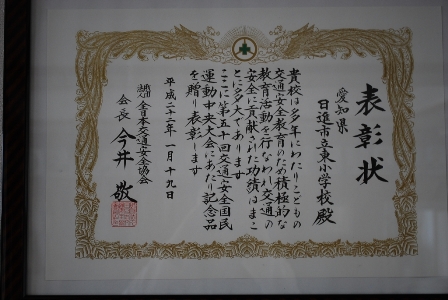 表彰状
愛知県
日進市立東小学校殿
貴校は多年にわたりこどもの
交通安全教育のため積極的な
教育活動を行ない交通の
安全に貢献された功績はまこ
とに多大であります
ここに第五十回交通安全国民
運動中央大会にあたり記念品
を贈り表彰します
平成二十二年一月十九日
全日本交通安全協会
会長 今井敬